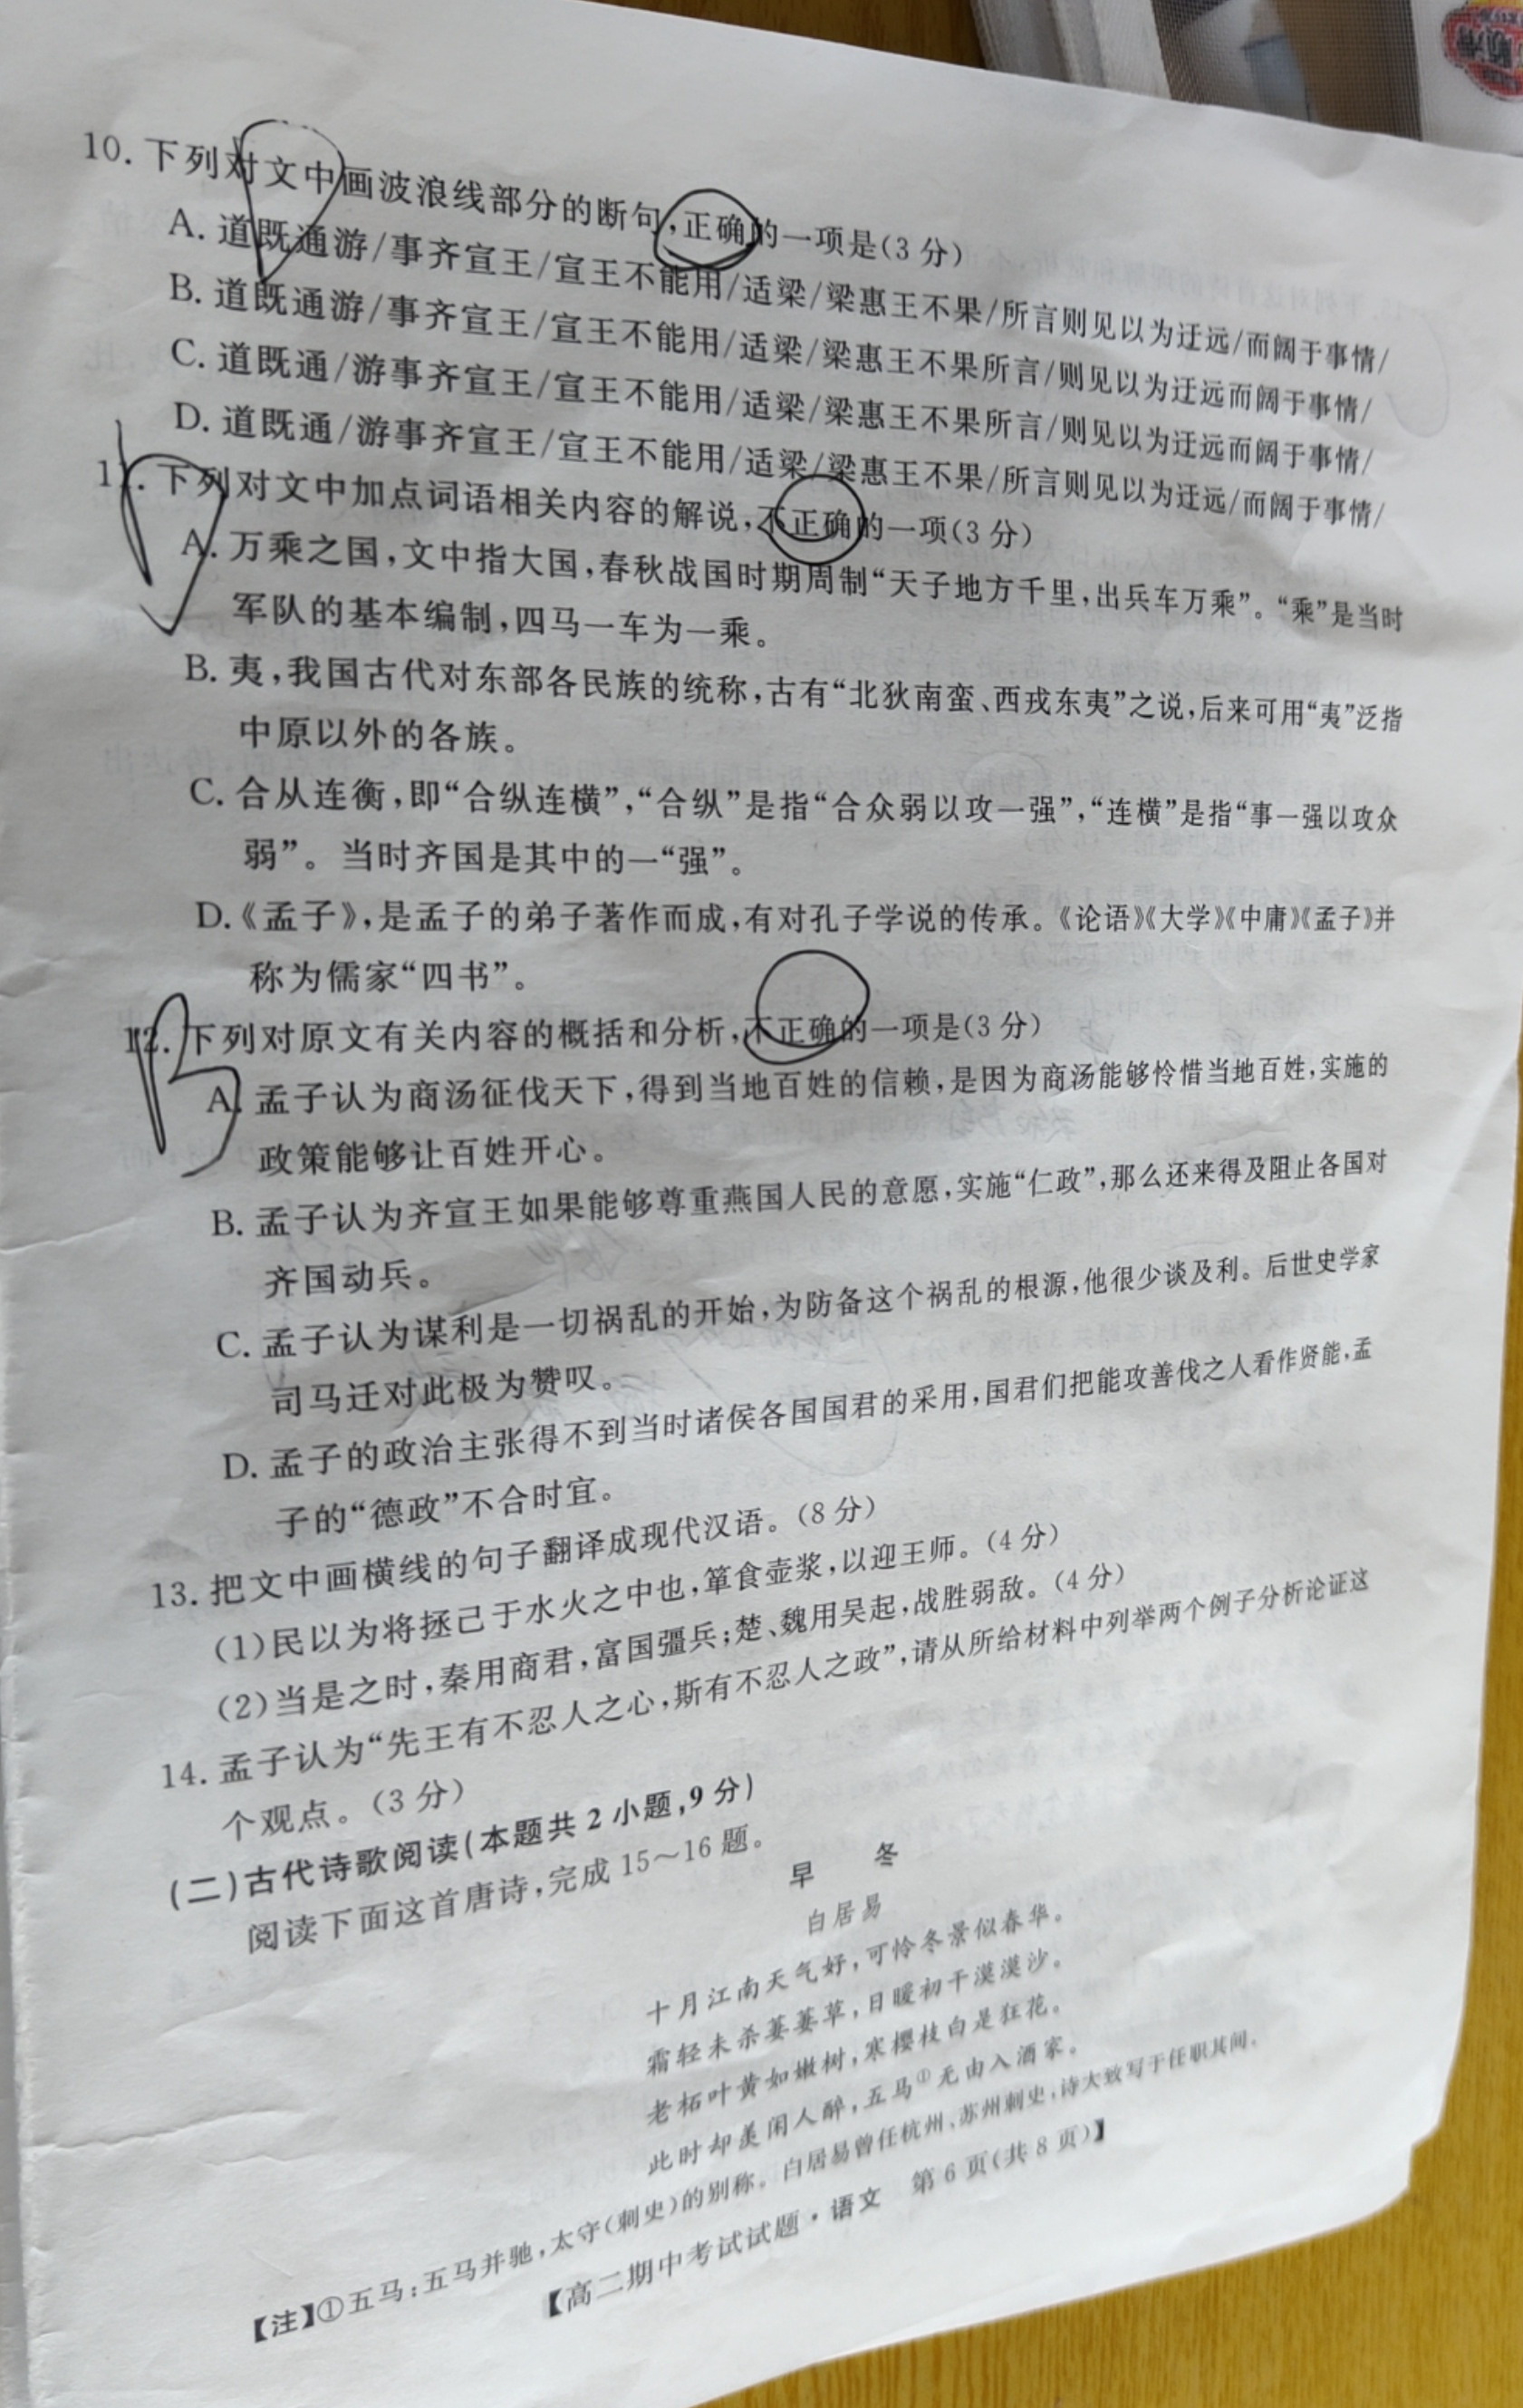 10. 下列对文中画波浪线部分的断句,正确的一项是(3 分)
A. 道既通游/事齐宣王/宣王不能用/适梁/梁惠王不果/所言则见以为迂远/而阔于事情/
B. 道既通游/事齐宣王/宣王不能用/适梁/梁惠王不果所言/则见以为迂远而阔于事情/
C. 道既通/游事齐宣王/宣王不能用/适梁/梁惠王不果所言/则见以为迂远而阔于事情/
D. 道既通/游事齐宣王/宣王不能用/适梁/梁惠王不果/所言则见以为迂远/而阔于事情/
11. 下列对文中加点词语相关内容的解说,不正确的一项(3 分)
A. 万乘之国,文中指大国,春秋战国时期周制“天子地方千里,出兵车万乘”。“乘”是当时
军队的基本编制,四马一车为一乘。
B. 夷,我国古代对东部各民族的统称,古有“北狄南蛮、西戎东夷”之说,后来可用“夷”泛指
中原以外的各族。
C. 合从连衡,即“合纵连横”,“合纵”是指“合众弱以攻一强”,“连横”是指“事一强以攻众
弱”。当时齐国是其中的一“强”。
D.《孟子》,是孟子的弟子著作而成,有对孔子学说的传承。《论语》《大学》《中庸》《孟子》并
称为儒家“四书”。
12. 下列对原文有关内容的概括和分析,不正确的一项是(3 分)
A. 孟子认为商汤征伐天下,得到当地百姓的信赖,是因为商汤能够怜惜当地百姓,实施的
政策能够让百姓开心。
B. 孟子认为齐宣王如果能够尊重燕国人民的意愿,实施“仁政”,那么还来得及阻止各国对
齐国动兵。
C. 孟子认为谋利是一切祸乱的开始,为防备这个祸乱的根源,他很少谈及利。后世史学家
司马迁对此极为赞叹。
D. 孟子的政治主张得不到当时诸侯各国国君的采用,国君们把能攻善伐之人看作贤能,孟
子的“德政”不合时宜。
13. 把文中画横线的句子翻译成现代汉语。(8 分)
(1)民以为将拯己于水火之中也,箪食壶浆,以迎王师。(4 分)
(2)当是之时,秦用商君,富国彊兵;楚、魏用吴起,战胜弱敌。(4 分)
14. 孟子认为“先王有不忍人之心,斯有不忍人之政”,请从所给材料中列举两个例子分析论证这
个观点。(3 分)
(二)古代诗歌阅读(本题共 2 小题,9 分)
阅读下面这首唐诗,完成 15～16 题。
早 冬
白居易
十月江南天气好,可怜冬景似春华。
霜轻未杀萋萋草,日暖初干漠漠沙。
老柘叶黄如嫩树,寒樱枝白是狂花。
此时却羡闲人醉,五马①无由入酒家。
【注】①五马:五马并驰,太守(刺史)的别称。白居易曾任杭州、苏州刺史,诗大致写于任职其间。
【高二期中考试试题·语文 第 6 页(共 8 页)】